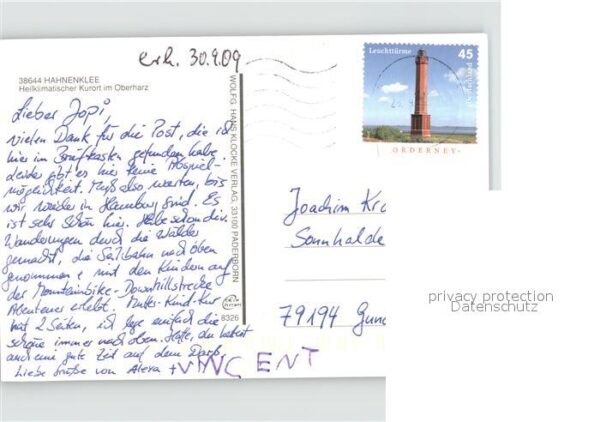 erh. 30.9.09
38644 HAHNENKLEE
Heilklimatischer Kurort im Oberharz
Lieber Jopi,
vielen Dank für die Post, die ich
hier im Briefkasten gefunden habe.
Leider gibt es hier keine Abspiel-
möglichkeit. Muß also warten, bis
wir wieder in Hamburg sind. Es
ist sehr schön hier. Habe schon die
Wanderungen durch die Wälder
gemacht, die Seilbahn nach oben
genommen & mit den Kindern auf
der Mountainbike-Downhillstrecke
Abenteuer erlebt. Mutter-Kind-Kur
hat 2 Seiten, ich lege einfach die
schöne immer nach oben. Hoffe, du hattest
auch eine gute Zeit auf dem
Liebe Grüße von Alexa +
VINCENT
WOLFG. HANS KLOCKE VERLAG, 33100 PADERBORN
8326
Leuchttürme
45
Deutschland
ORDERNEY
Joachim Kr
Sonnhalde
79194 Gun
privacy protection
Datenschutz